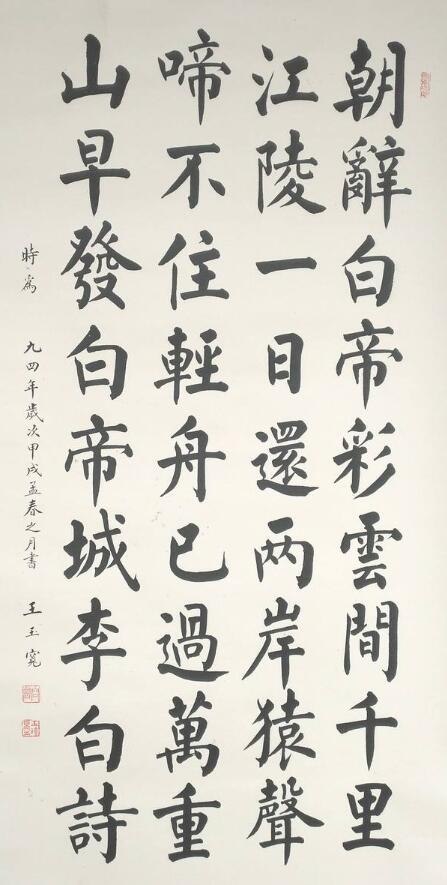 朝辭白帝彩雲間千里
江陵一日還两岸猿聲
啼不住輕舟已過萬重
山早發白帝城李白詩
時為 九四年歲次甲戌孟春之月書 王玉寬